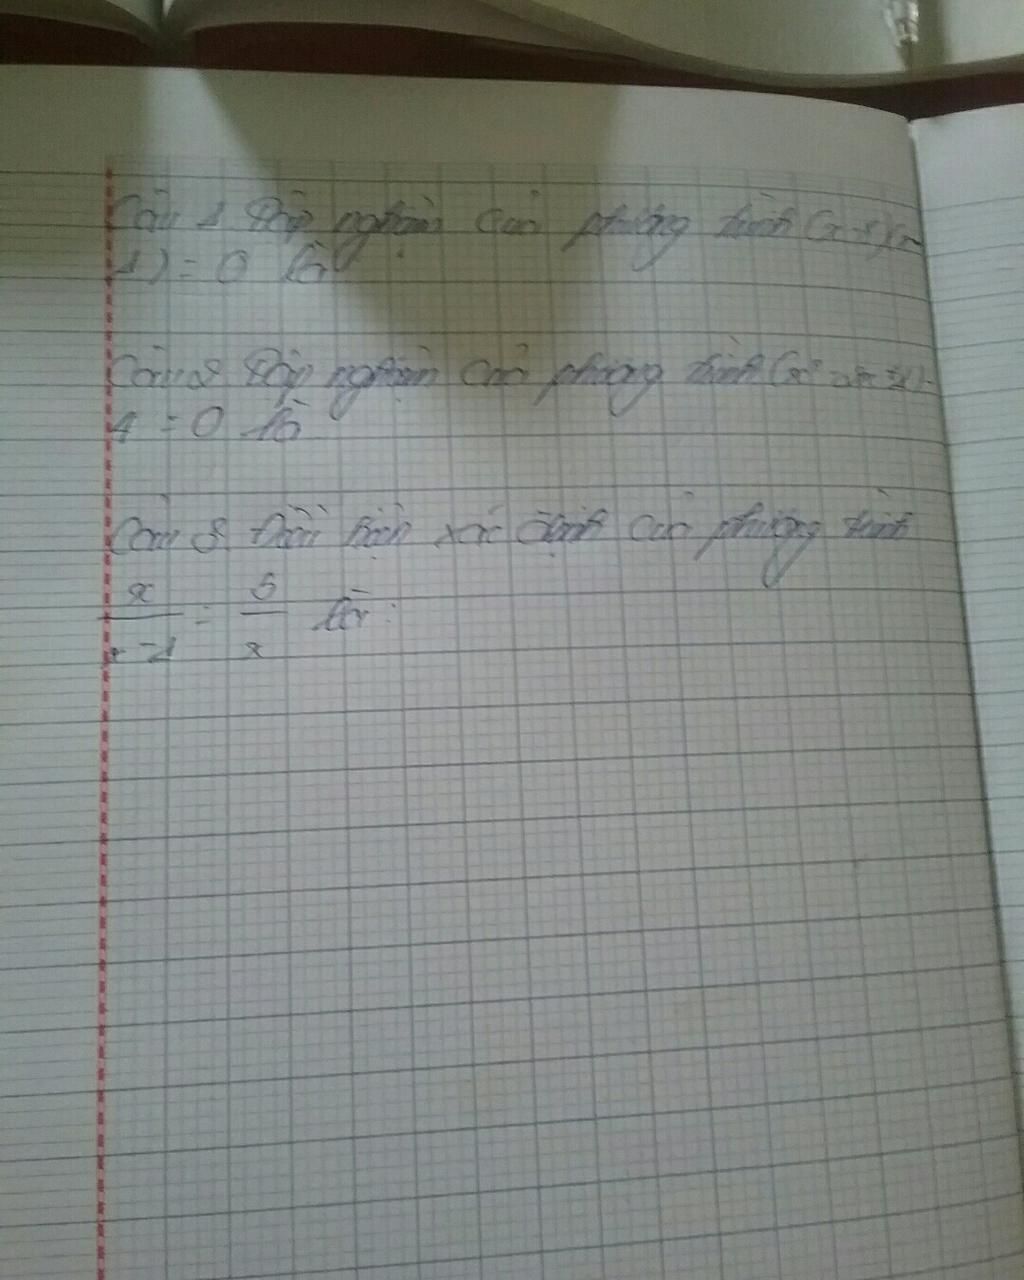 Câu 1 Tập nghiệm của phương trình (x
1) = 0 là
Câu 2 Tập nghiệm của phương trình (x² - 2x + 1) -
4 = 0 là
Câu 3. Điều kiện xác định của phương trình
x/x-1 = 5/x là: